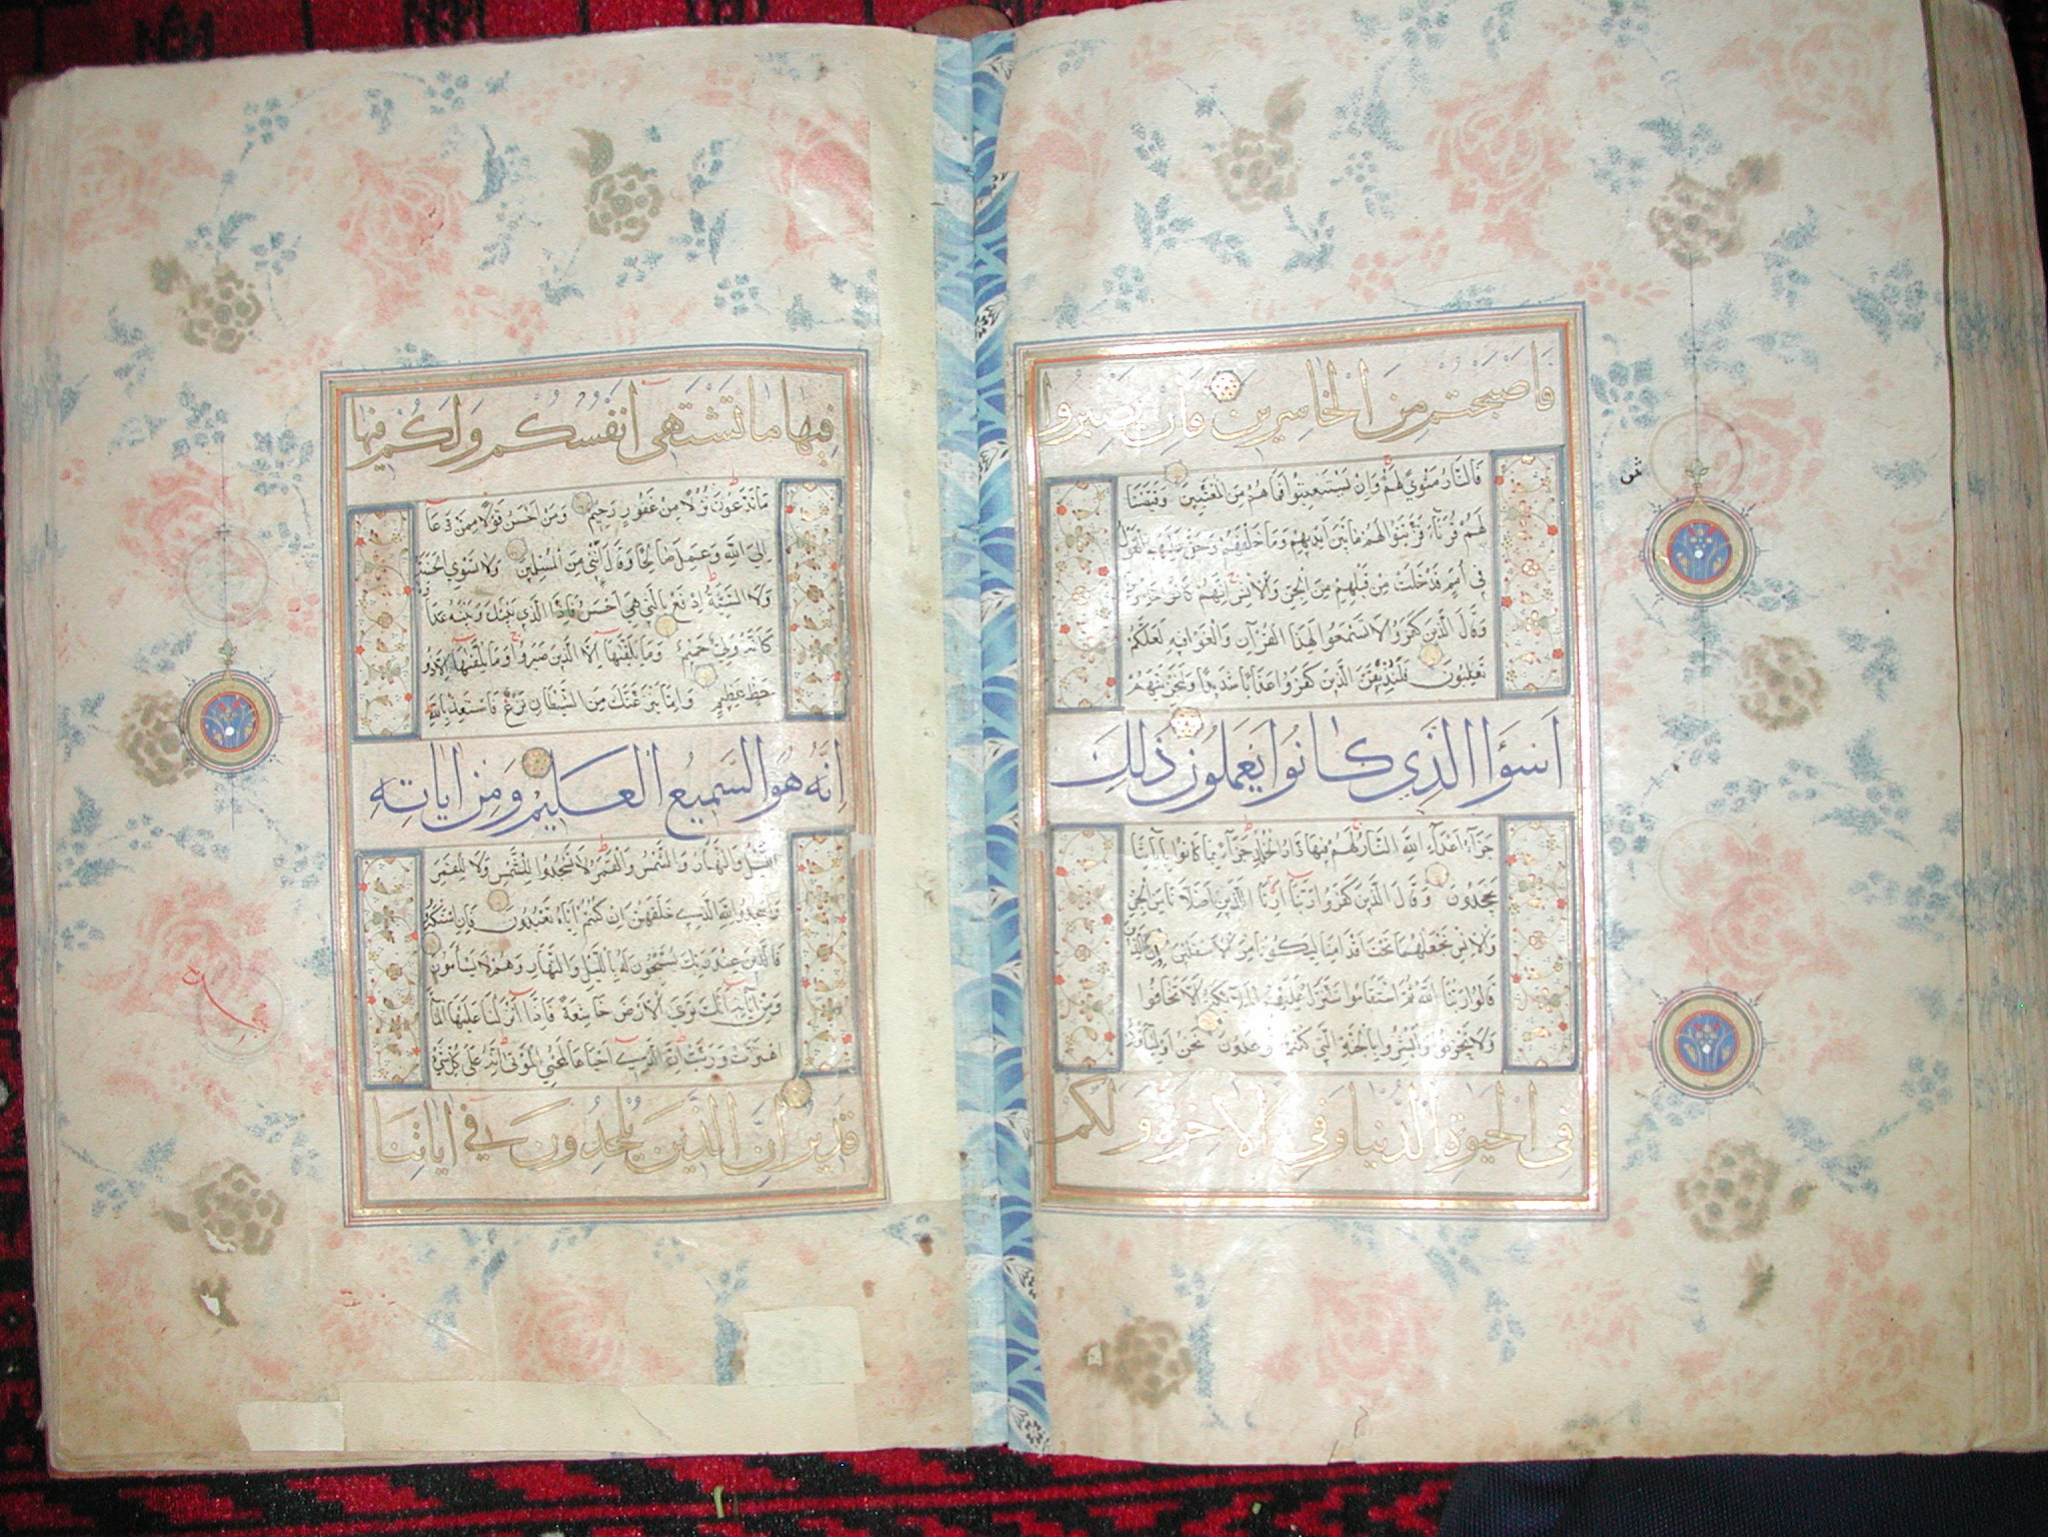 فَاصبَحتم مِنَ الْخاسِرينَ فَاِن يصبِروا
فَالنَّارُ مَثْوًي لَهُمْ وَاِنْ يَسْتَعْتِبُوا فَمَا هُمْ مِنَ الْمُعْتَبِينَ وَقَيَّضْنَا
لَهُمْ قُرَنَآءَ فَزَيَّنُوا لَهُمْ مَا بَيْنَ اَيْدِيهِمْ وَمَا خَلْفَهُمْ وَحَقَّ عَلَيْهِمُ الْقَوْلُ
فِي اُمَمٍ قَدْ خَلَتْ مِنْ قَبْلِهِمْ مِنَ الْجِنِّ وَالْاِنْسِ اِنَّهُمْ كَانُوا خَاسِرِينَ
وَقَالَ الَّذِينَ كَفَرُوا لَا تَسْمَعُوا لِهَذَا الْقُرْآنِ وَالْغَوْا فِيهِ لَعَلَّكُمْ
تَغْلِبُونَ فَلَنُذِيقَنَّ الَّذِينَ كَفَرُوا عَذَابًا شَدِيدًا وَلَنَجْزِيَنَّهُمْ
اَسْوَاَ الَّذِي كَانُوا يَعْمَلُونَ ذَلِكَ
جَزَآءُ اَعْدَآءِ اللَّهِ النَّارُ لَهُمْ فِيهَا دَارُ الْخُلْدِ جَزَآءً بِمَا كَانُوا بِآيَاتِنَا
يَجْحَدُونَ وَقَالَ الَّذِينَ كَفَرُوا رَبَّنَآ اَرِنَا الَّذَيْنِ اَضَلَّانَا مِنَ الْجِنِّ
وَالْاِنْسِ نَجْعَلْهُمَا تَحْتَ اَقْدَامِنَا لِيَكُونَا مِنَ الْاَسْفَلِينَ اِنَّ الَّذِينَ
قَالُوا رَبُّنَا اللَّهُ ثُمَّ اسْتَقَامُوا تَتَنَزَّلُ عَلَيْهِمُ الْمَلَآئِكَةُ اَلَّا تَخَافُوا
وَلَا تَحْزَنُوا وَاَبْشِرُوا بِالْجَنَّةِ الَّتِي كُنْتُمْ تُوعَدُونَ نَحْنُ اَوْلِيَآؤُكُمْ
فِي الْحَيٰوةِ الدُّنْيَا وَفِي الْاٰخِرَةِ وَلَكُمْ
فِيهَا مَا تَشْتَهِي اَنْفُسُكُمْ وَلَكُمْ فِيهَا
مَا تَدَّعُونَ نُزُلًا مِنْ غَفُورٍ رَحِيمٍ وَمَنْ اَحْسَنُ قَوْلًا مِمَّنْ دَعَآ
اِلَى اللَّهِ وَعَمِلَ صَالِحًا وَقَالَ اِنَّنِي مِنَ الْمُسْلِمِينَ وَلَا تَسْتَوِي الْحَسَنَةُ
وَلَا السَّيِّئَةُ اِدْفَعْ بِالَّتِي هِيَ اَحْسَنُ فَاِذَا الَّذِي بَيْنَكَ وَبَيْنَهُ عَدَاوَةٌ
كَاَنَّهُ وَلِيٌّ حَمِيمٌ وَمَا يُلَقّٰهَآ اِلَّا الَّذِينَ صَبَرُوا وَمَا يُلَقّٰهَآ اِلَّا ذُو
حَظٍّ عَظِيمٍ وَاِمَّا يَنْزَغَنَّكَ مِنَ الشَّيْطَانِ نَزْغٌ فَاسْتَعِذْ بِاللَّهِ
اِنَّهُ هُوَ السَّمِيعُ الْعَلِيمُ وَمِنْ اٰيَاتِهِ
اللَّيْلُ وَالنَّهَارُ وَالشَّمْسُ وَالْقَمَرُ لَا تَسْجُدُوا لِلشَّمْسِ وَلَا لِلْقَمَرِ
وَاسْجُدُوا لِلَّهِ الَّذِي خَلَقَهُنَّ اِنْ كُنْتُمْ اِيَّاهُ تَعْبُدُونَ فَاِنِ اسْتَكْبَرُوا
فَالَّذِينَ عِنْدَ رَبِّكَ يُسَبِّحُونَ لَهُ بِاللَّيْلِ وَالنَّهَارِ وَهُمْ لَا يَسْاَمُونَ
وَمِنْ آيَاتِهِ اَنَّكَ تَرَي الْاَرْضَ خَاشِعَةً فَاِذَآ اَنْزَلْنَا عَلَيْهَا الْمَآءَ
اهْتَزَّتْ وَرَبَتْ اِنَّ الَّذِي اَحْيَاهَا لَمُحْيِي الْمَوْتَى اِنَّهُ عَلَى كُلِّ شَيْءٍ
قَدِيرٌ اِنَّ الَّذِينَ يُلْحِدُونَ فِي اٰيَاتِنَا